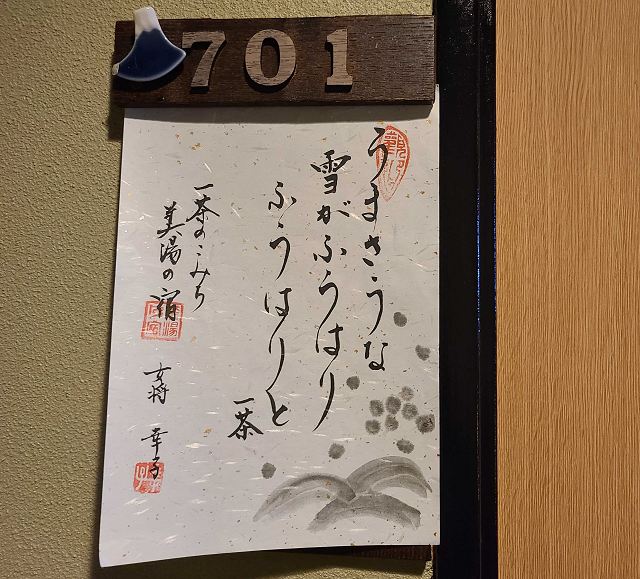 701
うまさうな
雪がふうはり
ふうはりと
一茶
一茶のこみち
美湯の宿
女将 幸子